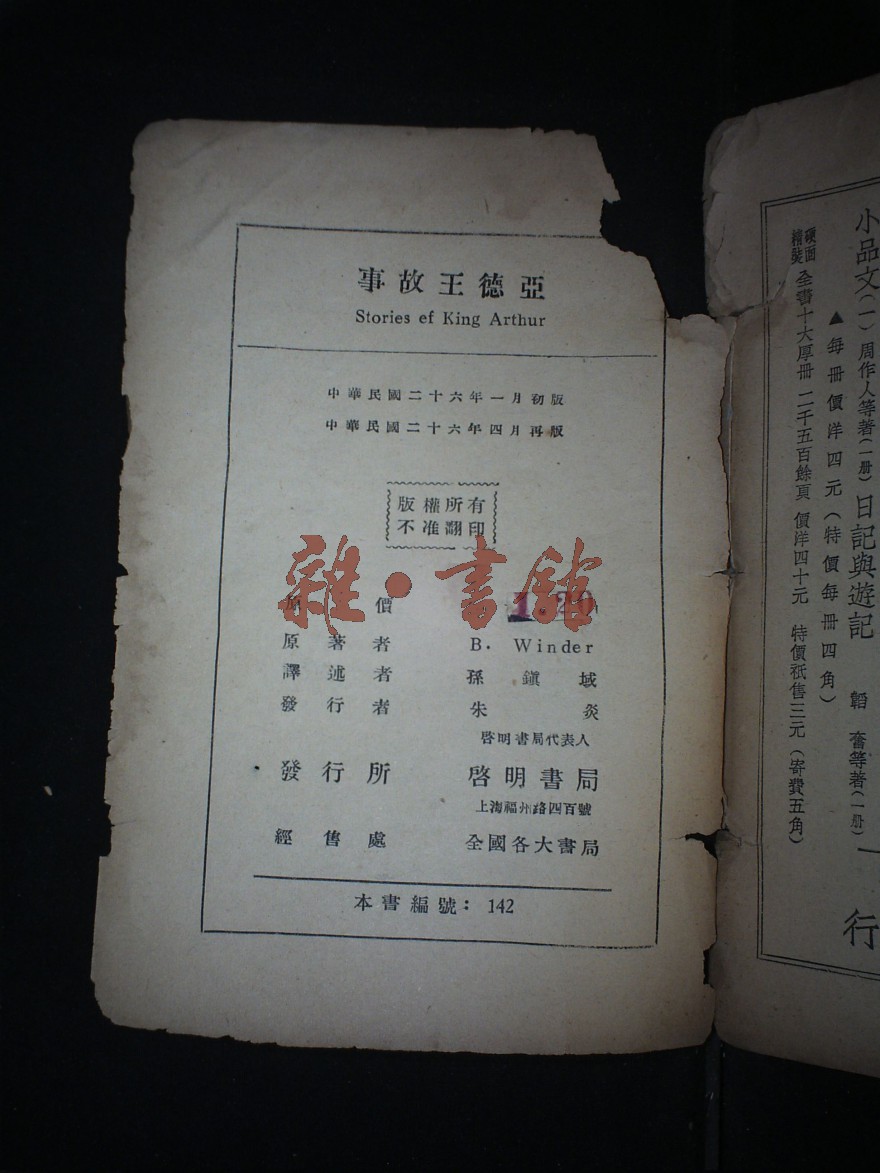 事故王德亞
Stories ef King Arthur
中華民國二十六年一月初版
中華民國二十六年四月再版
版權所有
不准翻印
雜·書館
價 1.20
原著者 B. Winder
譯述者 孫鎭域
發行者 朱炎
啓明書局代表人
發行所 啓明書局
上海福州路四百號
經售處 全國各大書局
本書編號：142
小品文(一)周作人等著(一册)日記與遊記 韜奮等著(一册)一
▲每册價洋四元(特價每册四角)
硬面精裝全書十大厚册 二千五百餘頁 價洋四十元 特價祇售三元(寄費五角)
行